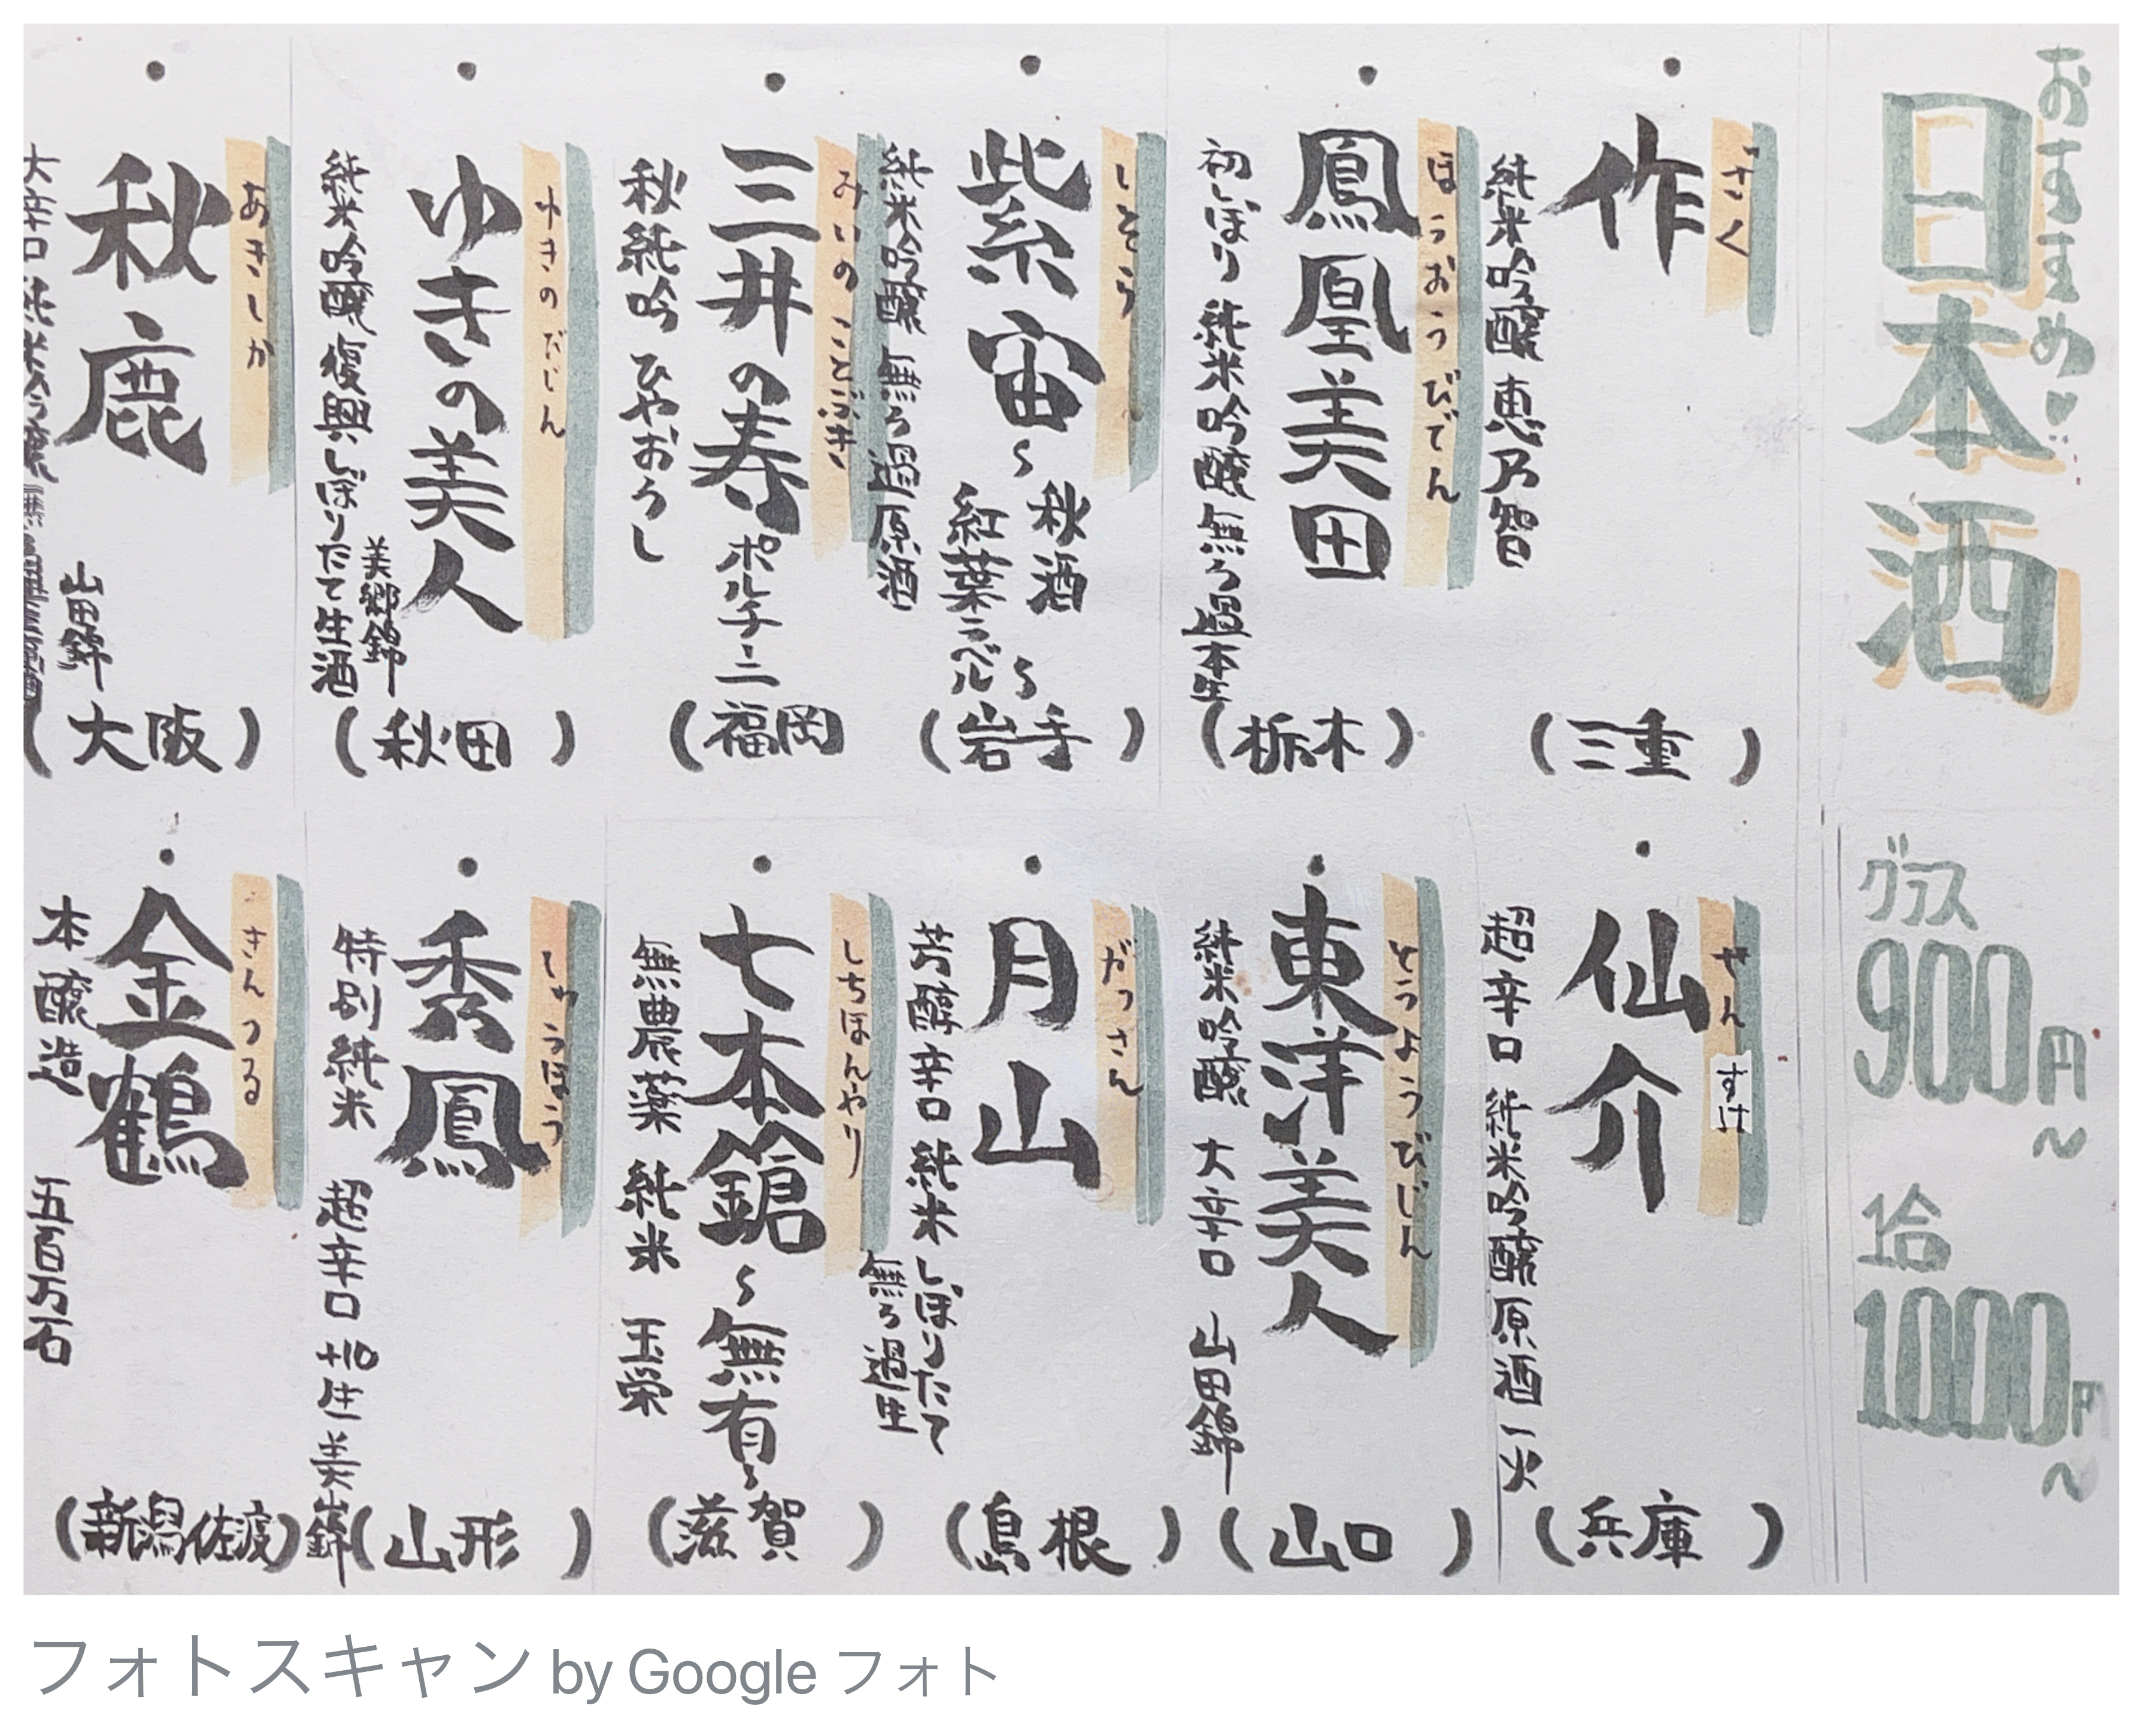 おすすめ
日本酒
・
さく
作
純米吟醸 恵乃智
(三重)
・
ほうおうびでん
鳳凰美田
初しぼり 純米吟醸 無ろ過本生
(栃木)
・
しそら
紫宙
~秋酒
紅葉ラベル~
純米吟醸 無ろ過原酒
(岩手)
・
みいのことぶき
三井の寿 ポルチーニ
秋純吟 ひやおろし
(福岡)
・
ゆきのびじん
ゆきの美人
美郷錦
純米吟醸 復興しぼりたて生酒
(秋田)
・
あきしか
秋鹿
山田錦
大辛口 純米吟醸
(大阪)
グラス
900円~
1合
1000円~
・
せんすけ
仙介
超辛口 純米吟醸原酒 一火
(兵庫)
・
とうようびじん
東洋美人
純米吟醸 大辛口 山田錦
(山口)
・
がっさん
月山
芳醇辛口純米 しぼりたて
無ろ過生
(島根)
・
しちほんやり
七本鎗~無有~
無農薬 純米 玉栄
(滋賀)
・
しゅうほう
秀鳳
特別純米 超辛口 +10 生 美山錦
(山形)
・
きんつる
金鶴
本醸造 五百万石
(新潟佐渡)
フォトスキャン by Google フォト